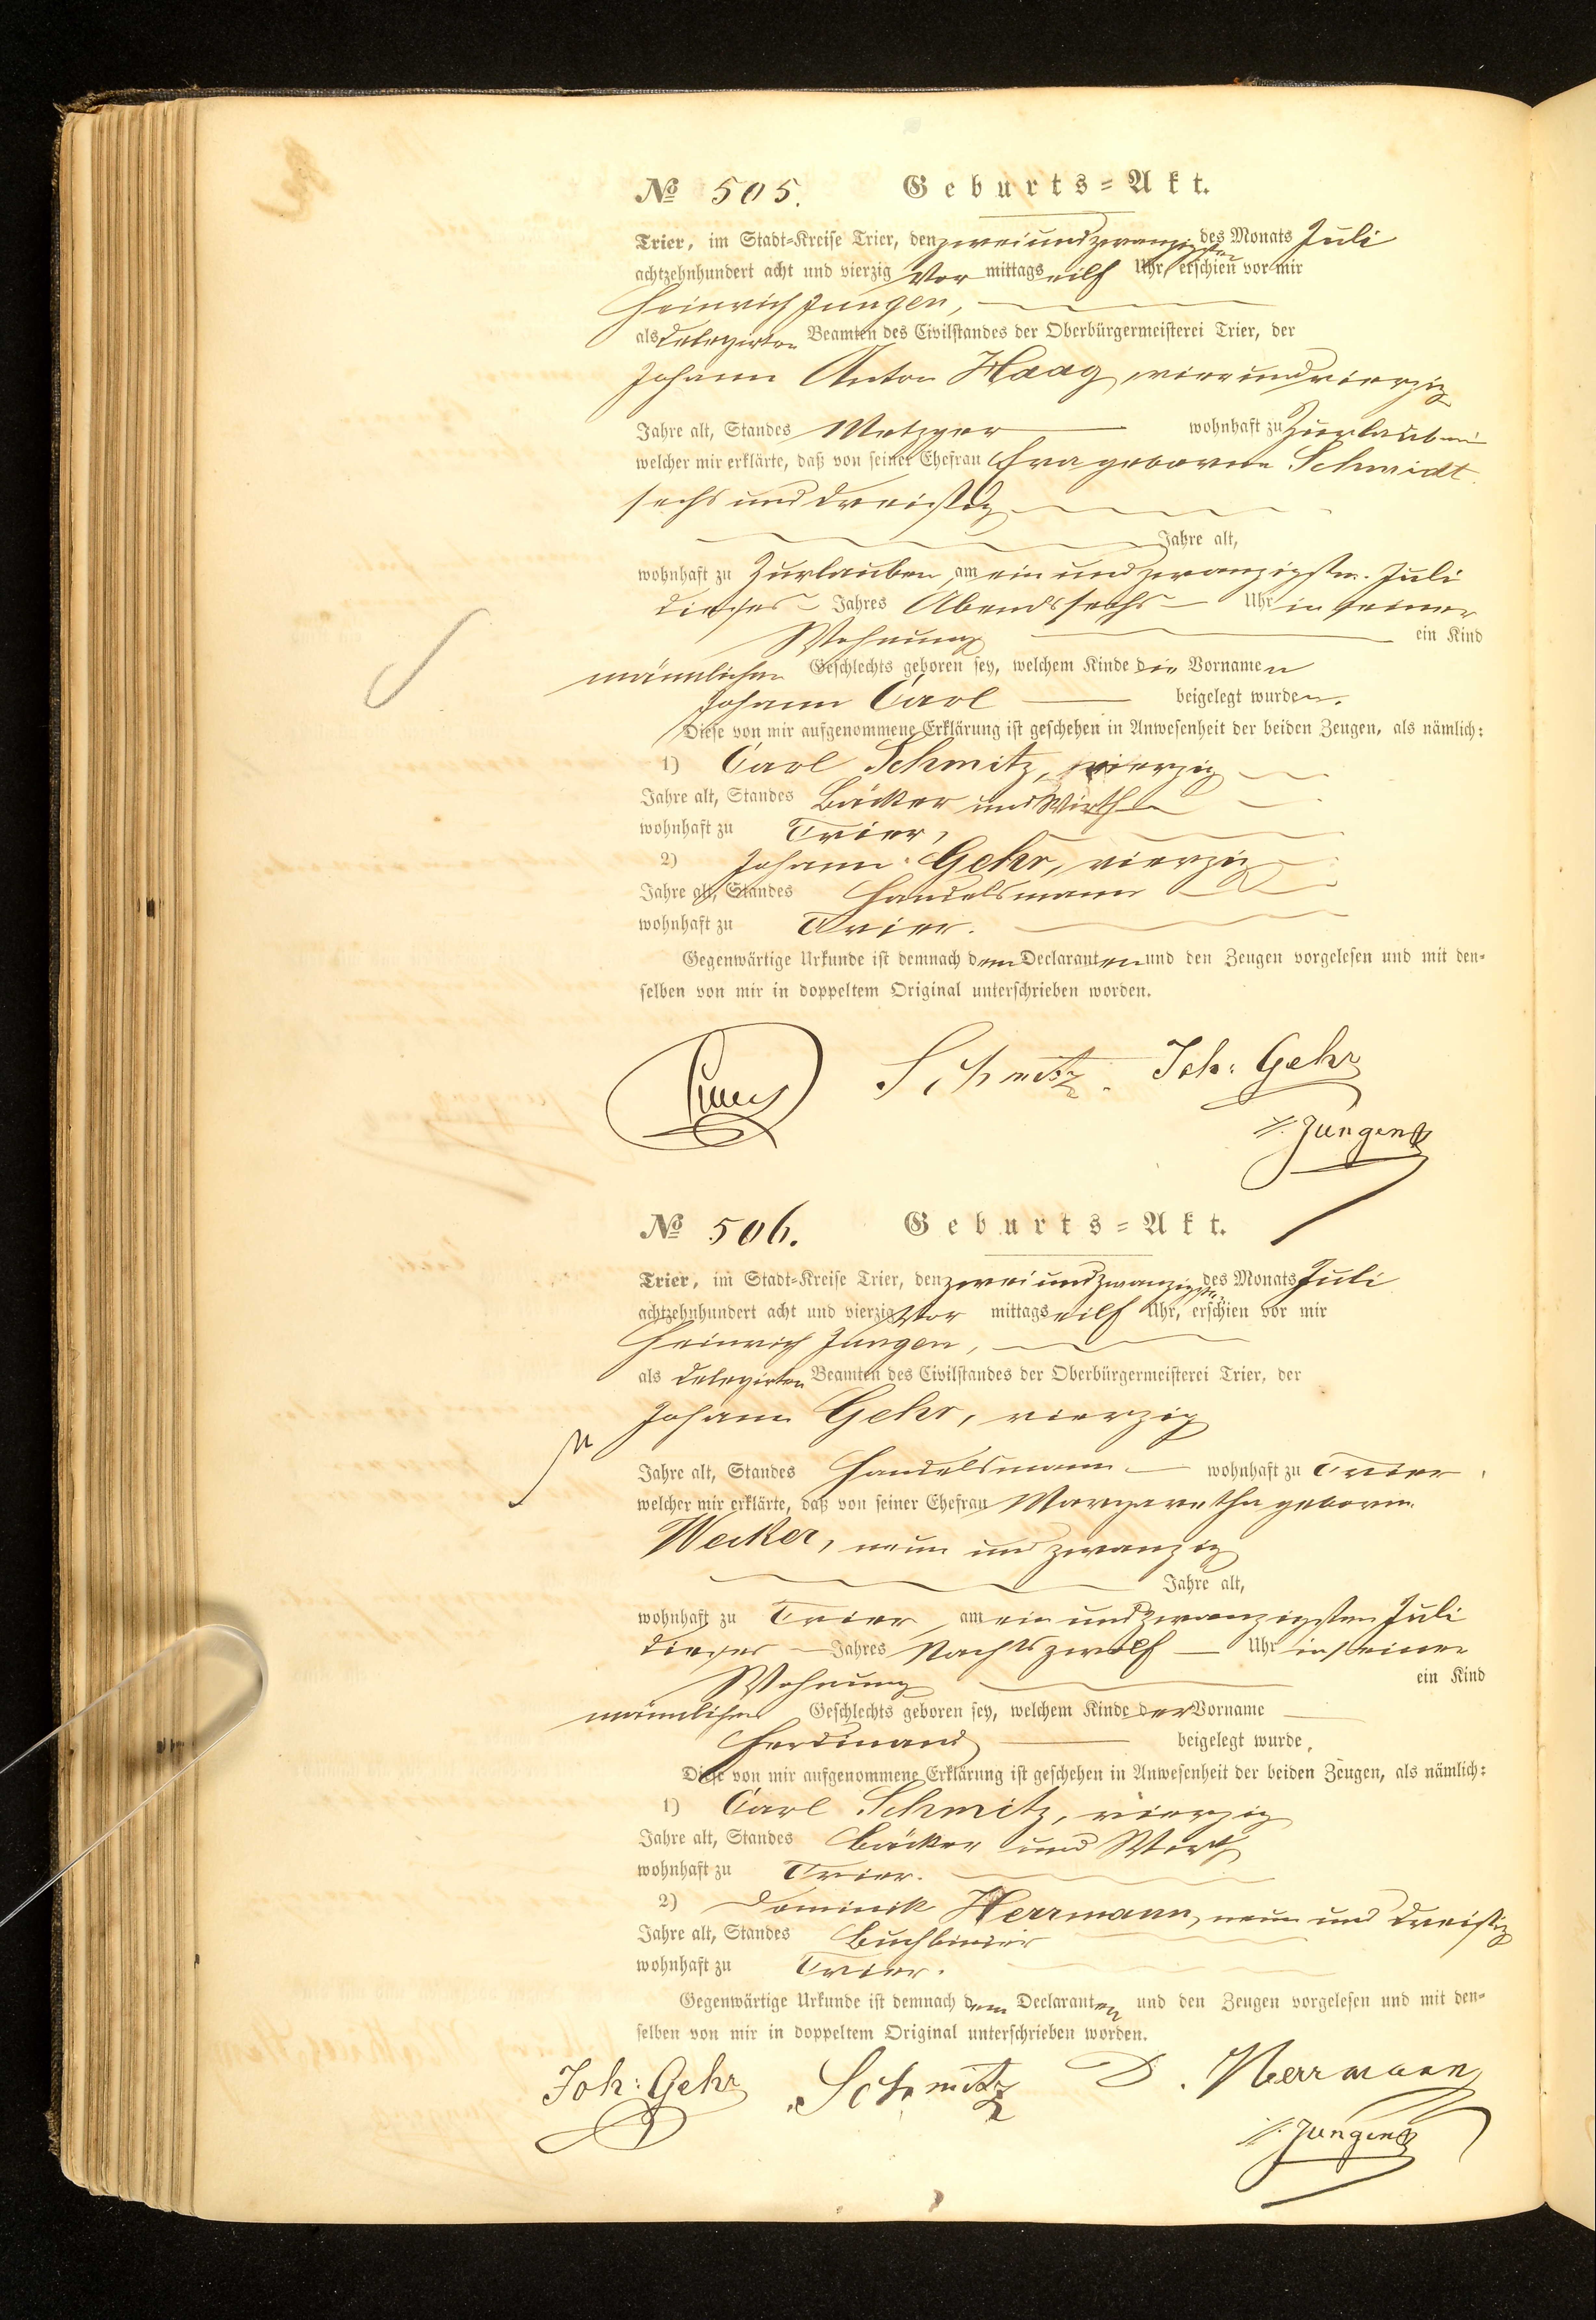 № 505. Geburts=Akt.
Trier, im Stadt=Kreise Trier, den zweiundzwanzigsten des Monats Juli
achtzehnhundert acht und vierzig Vor mittags eilf Uhr, erschien vor mir
Heinrich Jungen,
als delegirten Beamten des Civilstandes der Oberbürgermeisterei Trier, der
Johann Anton Haag, vierundvierzig
Jahre alt, Standes Metzger wohnhaft zu Zurlauben
welcher mir erklärte, daß von seiner Ehefrau Eva geborene Schmidt
sechs und dreißig
Jahre alt,
wohnhaft zu Zurlauben, am ein und zwanzigsten Juli
dieses Jahres Abends sechs Uhr in seiner
Wohnung ein Kind
männlichen Geschlechts geboren sey, welchem Kinde die Vornamen
Johann Carl beigelegt wurden.
Diese von mir aufgenommene Erklärung ist geschehen in Anwesenheit der beiden Zeugen, als nämlich:
1) Carl Schmitz, vierzig
Jahre alt, Standes Bäcker und Wirth
wohnhaft zu Trier,
2) Johann Gehr, vierzig
Jahre alt, Standes Handelsmann
wohnhaft zu Trier.
Gegenwärtige Urkunde ist demnach dem Declaranten und den Zeugen vorgelesen und mit den=
selben von mir in doppeltem Original unterschrieben worden.
Schmitz. Joh: Gehr
H. Jungen
№ 506. Geburts=Akt.
Trier, im Stadt=Kreise Trier, den zwei und zwanzigsten des Monats Juli
achtzehnhundert acht und vierzig Vor mittags eilf Uhr, erschien vor mir
Heinrich Jungen,
als delegirten Beamten des Civilstandes der Oberbürgermeisterei Trier, der
Johann Gehr, vierzig
Jahre alt, Standes Handelsmann wohnhaft zu Trier,
welcher mir erklärte, daß von seiner Ehefrau Margaretha geborene
Wecker, neun und zwanzig
Jahre alt,
wohnhaft zu Trier, am ein und zwanzigsten Juli
dieses Jahres Nachts zwölf Uhr in seiner
Wohnung ein Kind
männlichen Geschlechts geboren sey, welchem Kinde der Vorname
Ferdinand beigelegt wurde.
Diese von mir aufgenommene Erklärung ist geschehen in Anwesenheit der beiden Zeugen, als nämlich:
1) Carl Schmitz, vierzig
Jahre alt, Standes Bäcker und Wirth
wohnhaft zu Trier.
2) Dominik Herrmann, neun und dreißig
Jahre alt, Standes Buchbinder
wohnhaft zu Trier.
Gegenwärtige Urkunde ist demnach dem Declaranten und den Zeugen vorgelesen und mit den=
selben von mir in doppeltem Original unterschrieben worden.
Joh: Gehr Schmitz D. Herrmann
H. Jungen